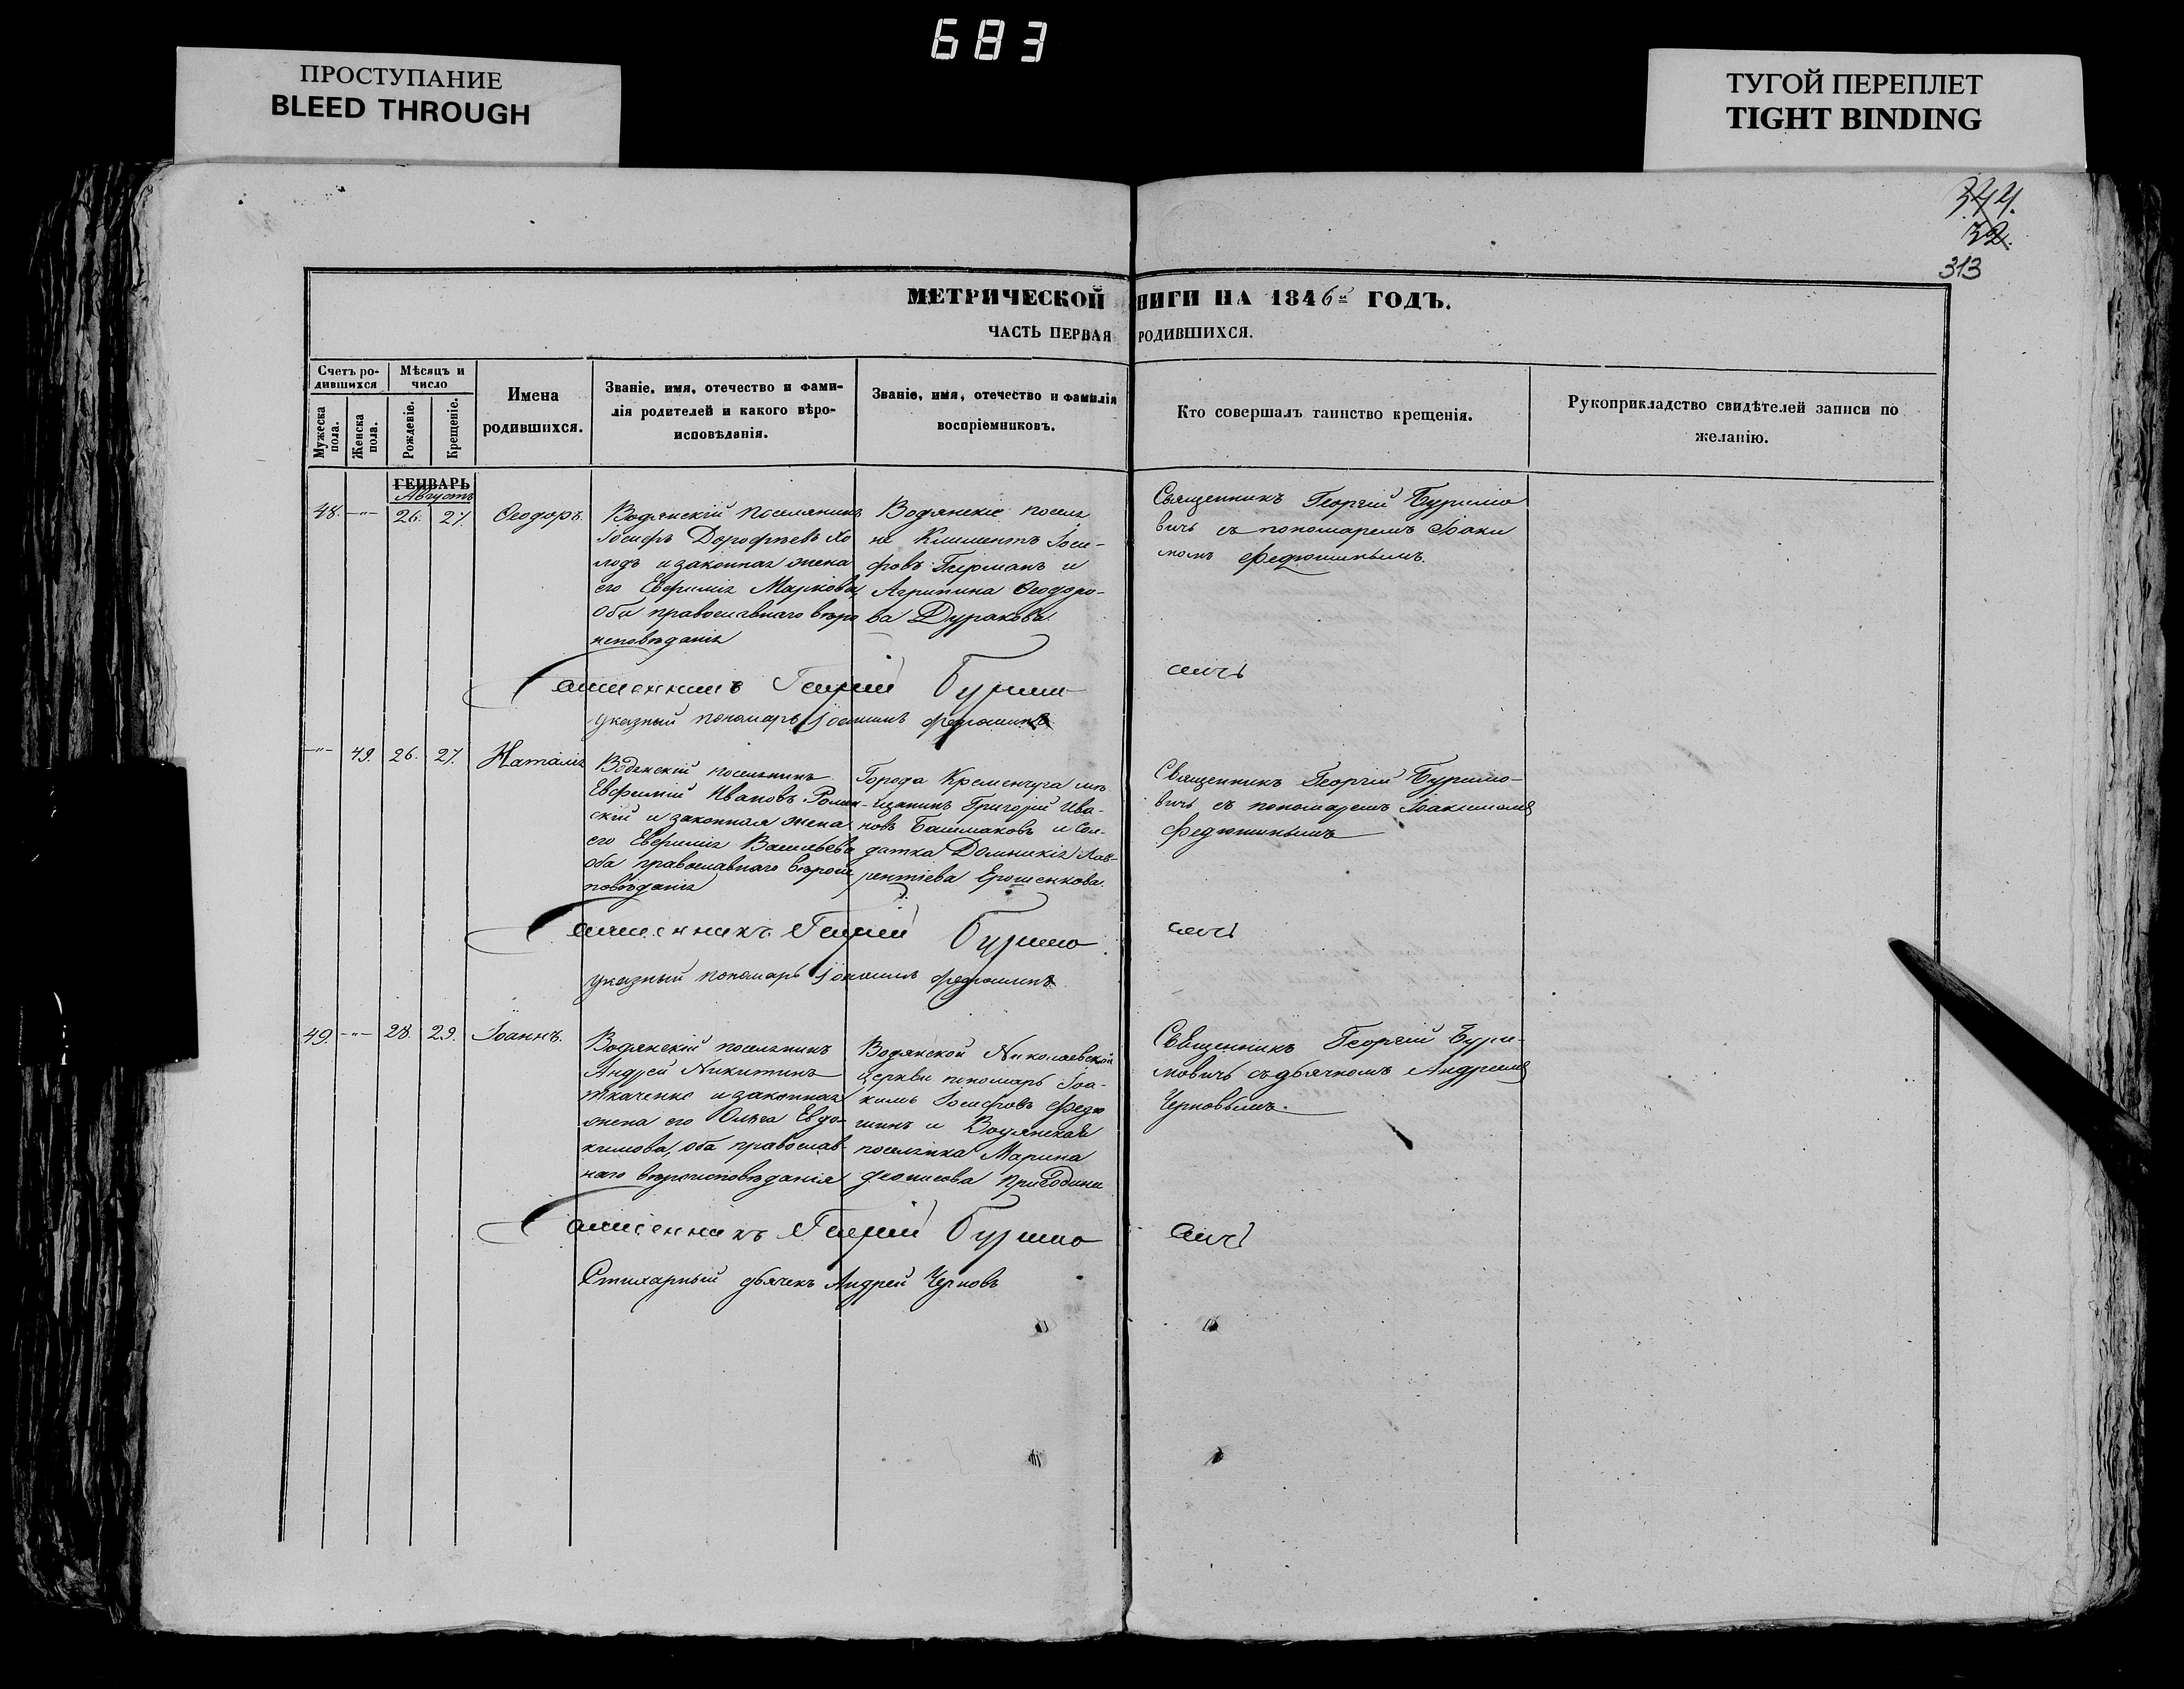 683
ПРОСТУПАНИЕ
BLEED THROUGH
ТУГОЙ ПЕРЕПЛЕТ
TIGHT BINDING
344.
32.
313
МЕТРИЧЕСКОЙ НИГИ НА 1846й ГОДЪ.
ЧАСТЬ ПЕРВАЯ РОДИВШИХСЯ.
Счетъ ро-
дившихся
Мужеска пола.
Женска пола.
Мѣсяцъ и
число
Рожденіе.
Крещеніе.
Имена
родившихся.
Званіе, имя, отечество и фами-
лія родителей и какого вѣро-
исповѣданія.
Званіе, имя, отечество и фамилія
воспріемниковъ.
Кто совершалъ таинство крещенія.
Рукоприкладство свидѣтелей записи по
желанію.
ГЕНВАРЬ
Августъ
48. -"- 26. 27. Ѳеодоръ.
Водянскій поселянинъ
Іосифъ Дорофѣевъ Хо
лодъ и законная жена
его Евфимія Маркова,
оба православнаго вѣро
исповѣданія
Водянскіе поселя
не Климентъ Іоси-
фовъ Гирманъ и
Агрипина Ѳеодоро-
ва Дуракова.
Священникъ Георгій Буримо
вичъ съ пономаремъ Іоаки
момъ Федюшинымъ.
Священникъ Георгій Буримо
вичъ
указный пономарь Іоакимъ Федюшинъ
-"- 49. 26. 27. Наталія
Водянскій поселянинъ
Евфимій Ивановъ Роман-
скій и законная жена
его Евфимія Васильева
оба православнаго вѣроис
повѣданія
Города Кременчуга мѣ-
щанинъ Григорій Ива-
новъ Башмаковъ и Сол-
датка Домникія Лав-
рентіева Ерошенкова.
Священникъ Георгій Буримо-
вичъ съ пономаремъ Іоакимомъ
Федюшинымъ
Священникъ Георгій Буримо
вичъ
указный пономарь Іоакимъ Федюшинъ
49. -"- 28. 29. Іоаннъ.
Водянскій поселянинъ
Андрей Никитинъ
Ткаченко и законная
жена его Ольга Евдо-
кимова, оба православ-
наго вѣроисповѣданія
Водянской Николаевской
церкви пономарь Іоа-
кимъ Іосифовъ Федю
шинъ и Водянская
поселянка Марина
Деонисова
Священникъ Георгій Бури-
мовичъ съ дьячкомъ Андреемъ
Черновымъ.
Священникъ Георгій Буримо
вичъ
Стихарный дьячекъ Андрей Черновъ